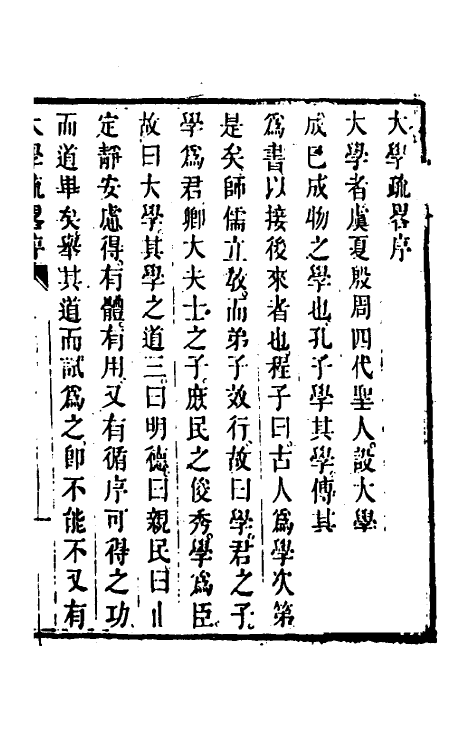 大學疏畧序
大學者虞夏殷周四代聖人設大學
成已成物之學也孔子學其學傳其
為書以接後來者也程子曰古人為學次第
是矣師儒立教而弟子效行故曰學君之子
學為君卿大夫士之子庶民之俊秀學為臣
故曰大學其學之道三曰明德曰親民曰
定靜安慮得有體有用又有循序可得之功
而道畢矣舉其道而試為之卽不能不又有
大學疏畧序